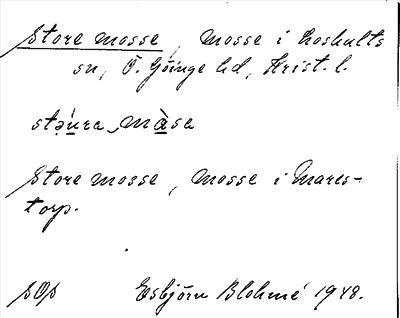 Store mosse, mosse i Loshults
sn, Ö. Göinge hd, Krist. l.
stəúra màsa
Store mosse, mosse i Mares-
torp.
SOS Esbjörn Blohmé 1948.